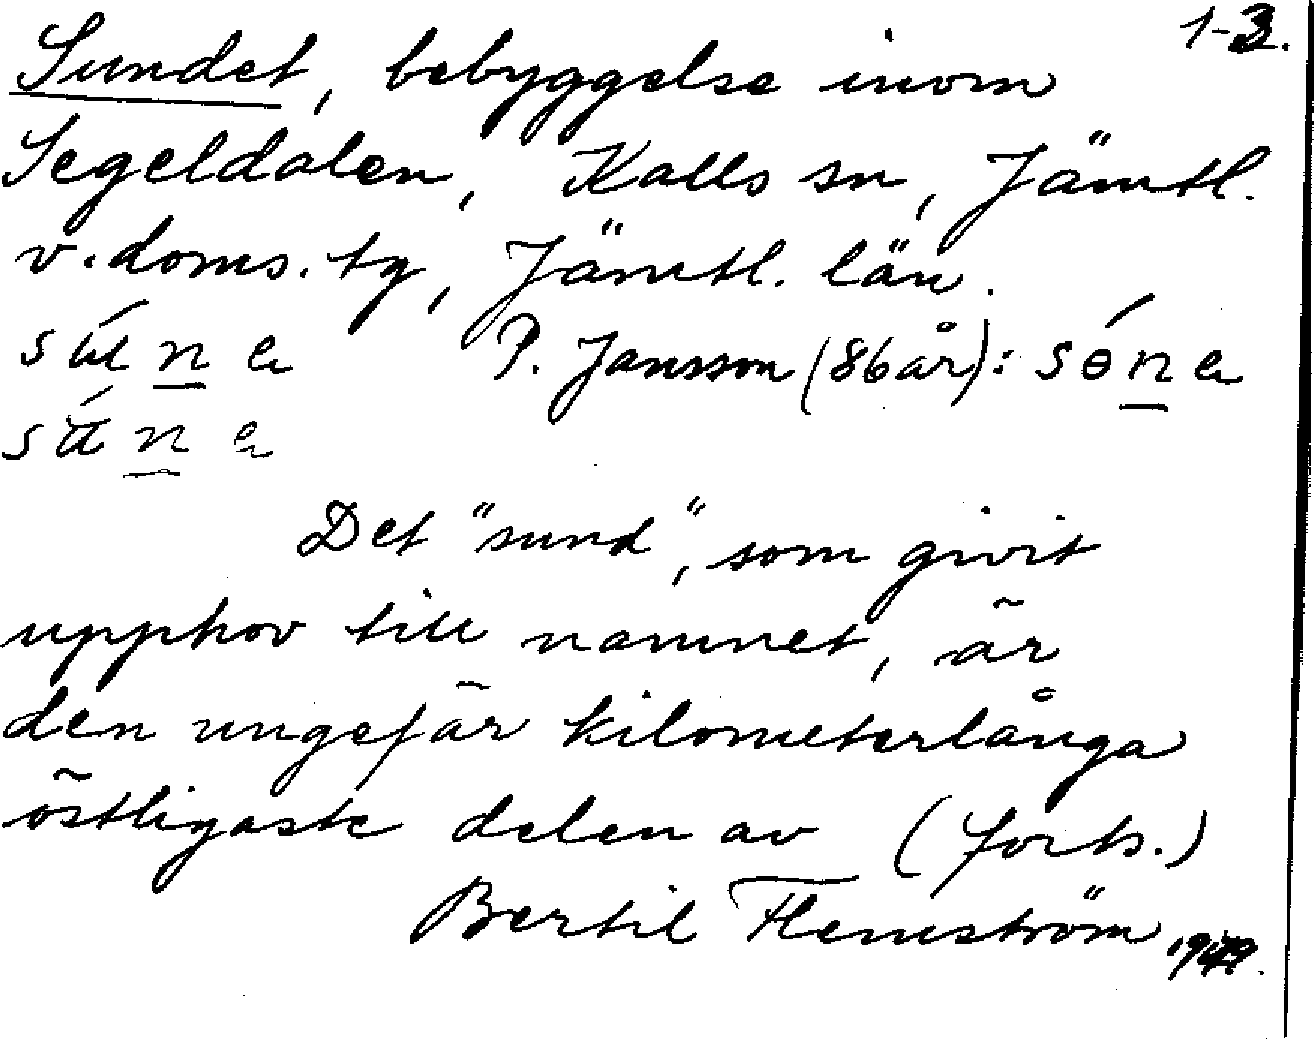 1-3.
Sundet, bebyggelse inom
Segeldalen, Kalls sn, Jämtl.
v. doms. tg, Jämtl. län.
P. Jansson (86 år):
Det "sund", som givit
upphov till namnet, är
den ungefär kilometerlånga
östligaste delen av (forts.)
Bertil Flemström